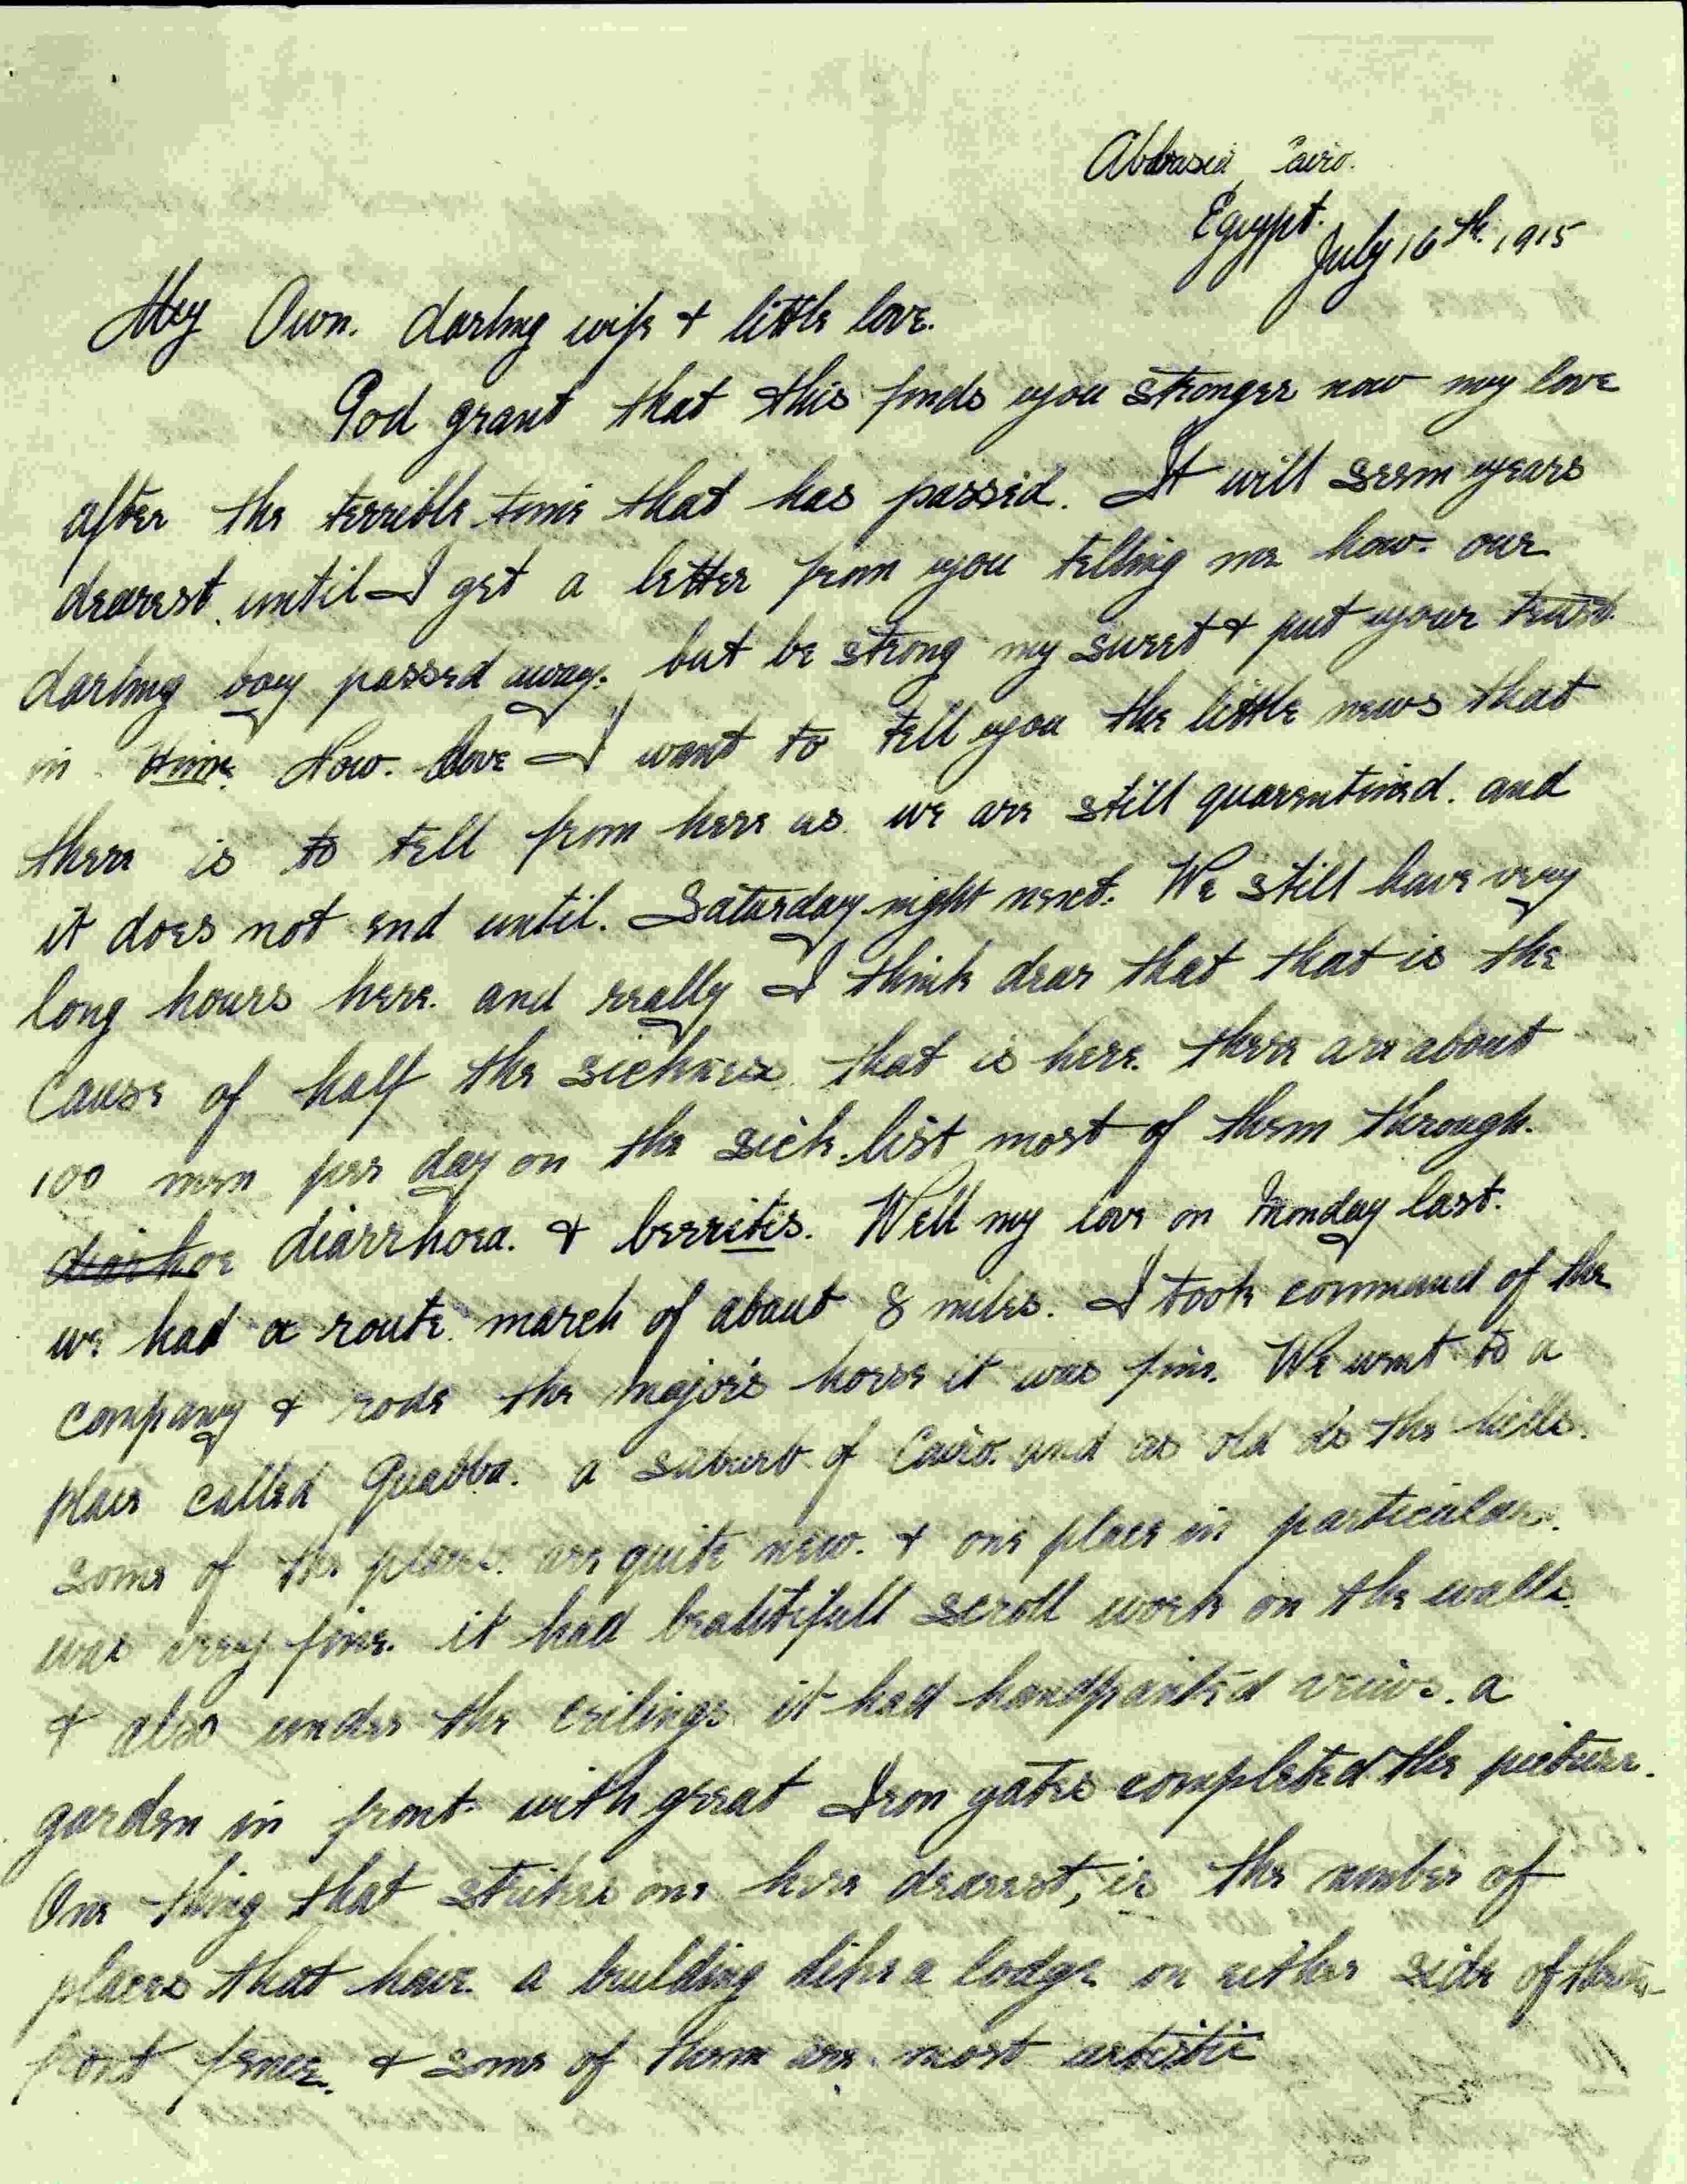 Abbasia, Cairo.
Egypt.
July 16th. 1915
My Own. darling wife & little love.
God grant that this finds you stronger now my love
after the terrible time that has passed. It will seem years
dearest. until I get a letter from you telling me how. our
darling boy passed away. but be strong my sweet & put your trust.
in Him. Now. love I want to tell you the little news that
there is to tell from here as we are still quarentined. and
it does not end until. Saturday night next. We still have very
long hours here. and really I think dear that that is the
cause of half the sickness that is here. there are about
100 men per day on the sick list most of them through.
diarrhoea. & berrites. Well my love on Monday last.
we had a route march of about 8 miles. I took command of the
company & rode the major's horse it was fine. We went to a
place called Quabba. a suburb of Cairo. and as old as the hills.
some of the places. are quite new. & one place in particular.
was very fine. it had beautifull scroll work on the walls.
& also under the ceilings it had handpainted views. a
garden in front with great Iron gates completed the picture.
One thing that strikes one here dearest, is the number of
places that have a building like a lodge on either side of their
front fence. & some of them are most artistic